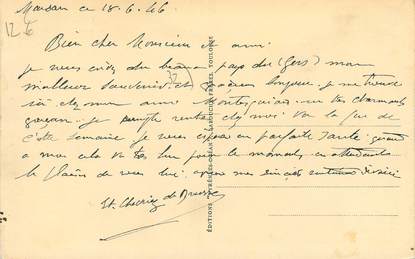 Marsan ce 18.6.46
12 €
Bien cher Monsieur et ami
je vous envoie du beau pays du (Gers) mon
meilleur souvenir et
32
je me trouve
ici chez mon ami Montesquiou un très charmant
gascon. je compte rentrer chez moi vers la fin de
cette semaine je vous espère en parfaite santé quand
a moi cela va très bien pour le moment en attendant
le plaisir de vous lire
ÉDITIONS "PYRÉNÉES-OCÉAN" LABOUCHE FRÈRES, TOULOUSE